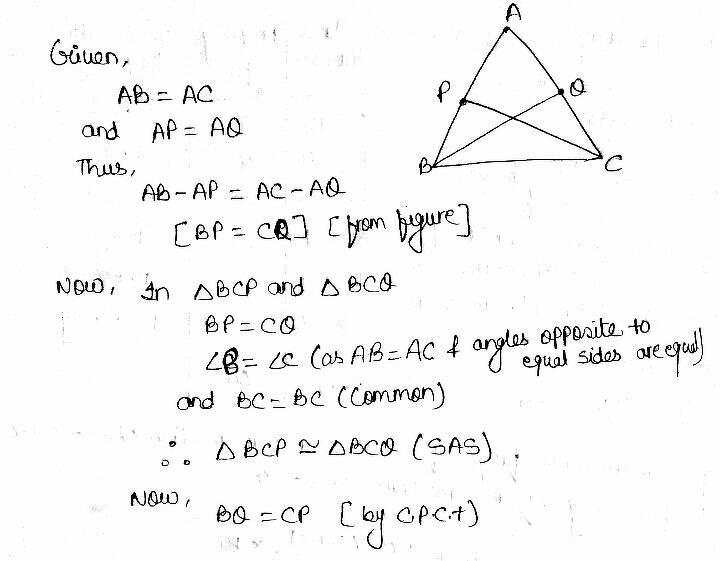 Given,
AB = AC
and AP = AQ
Thus,
AB - AP = AC - AQ
[BP = CQ] [from figure]
Now, In △BCP and △BCQ
BP = CQ
∠B = ∠C (as AB = AC & angles opposite to
equal sides are equal)
and BC = BC (Common)
∴ △BCP ≅ △BCQ (SAS).
Now,
BQ = CP [by C.P.C.t)
A
P
Q
B
C